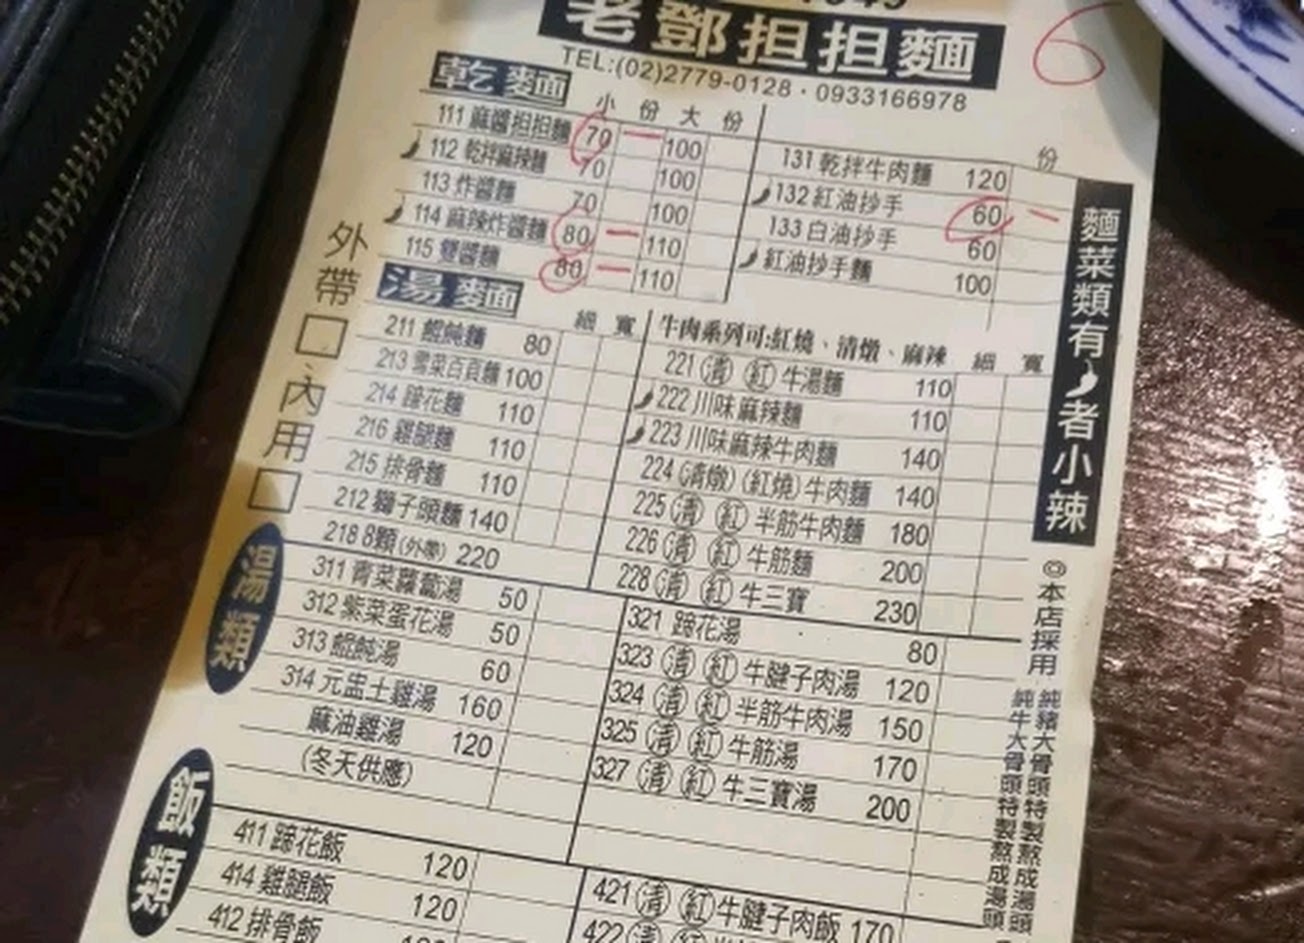 老鄧担担麵
TEL:(02)2779-0128·0933166978
6
乾麵
小份 大份
111 麻醬担担麵 70 一 100
112 乾拌麻辣麵 70 100
113 炸醬麵 70 100
114 麻辣炸醬麵 80 一 110
115 雙醬麵 80 一 110
份
131 乾拌牛肉麵 120
132 紅油抄手 60 一
133 白油抄手 60
紅油抄手麵 100
麵菜類有 者小辣
外帶□、內用□
湯麵
細 寬
211 餛飩麵 80
213 雪菜百頁麵 100
214 蹄花麵 110
216 雞腿麵 110
215 排骨麵 110
212 獅子頭麵 140
218 8顆(外帶) 220
牛肉系列可:紅燒、清燉、麻辣 細 寬
221 清 紅 牛湯麵 110
222 川味麻辣麵 110
223 川味麻辣牛肉麵 140
224 (清燉)(紅燒)牛肉麵 140
225 清 紅 半筋牛肉麵 180
226 清 紅 牛筋麵 200
228 清 紅 牛三寶 230
湯類
311 青菜蘿蔔湯 50
312 紫菜蛋花湯 50
313 餛飩湯 60
314 元盅土雞湯 160
麻油雞湯 120
(冬天供應)
321 蹄花湯 80
323 清 紅 牛腱子肉湯 120
324 清 紅 半筋牛肉湯 150
325 清 紅 牛筋湯 170
327 清 紅 牛三寶湯 200
◎本店採用
純豬大骨頭特製熬成湯頭
純牛大骨頭特製熬成湯頭
飯類
411 蹄花飯 120
414 雞腿飯 120
412 排骨飯
421 清 紅 牛腱子肉飯 170
422 清 紅